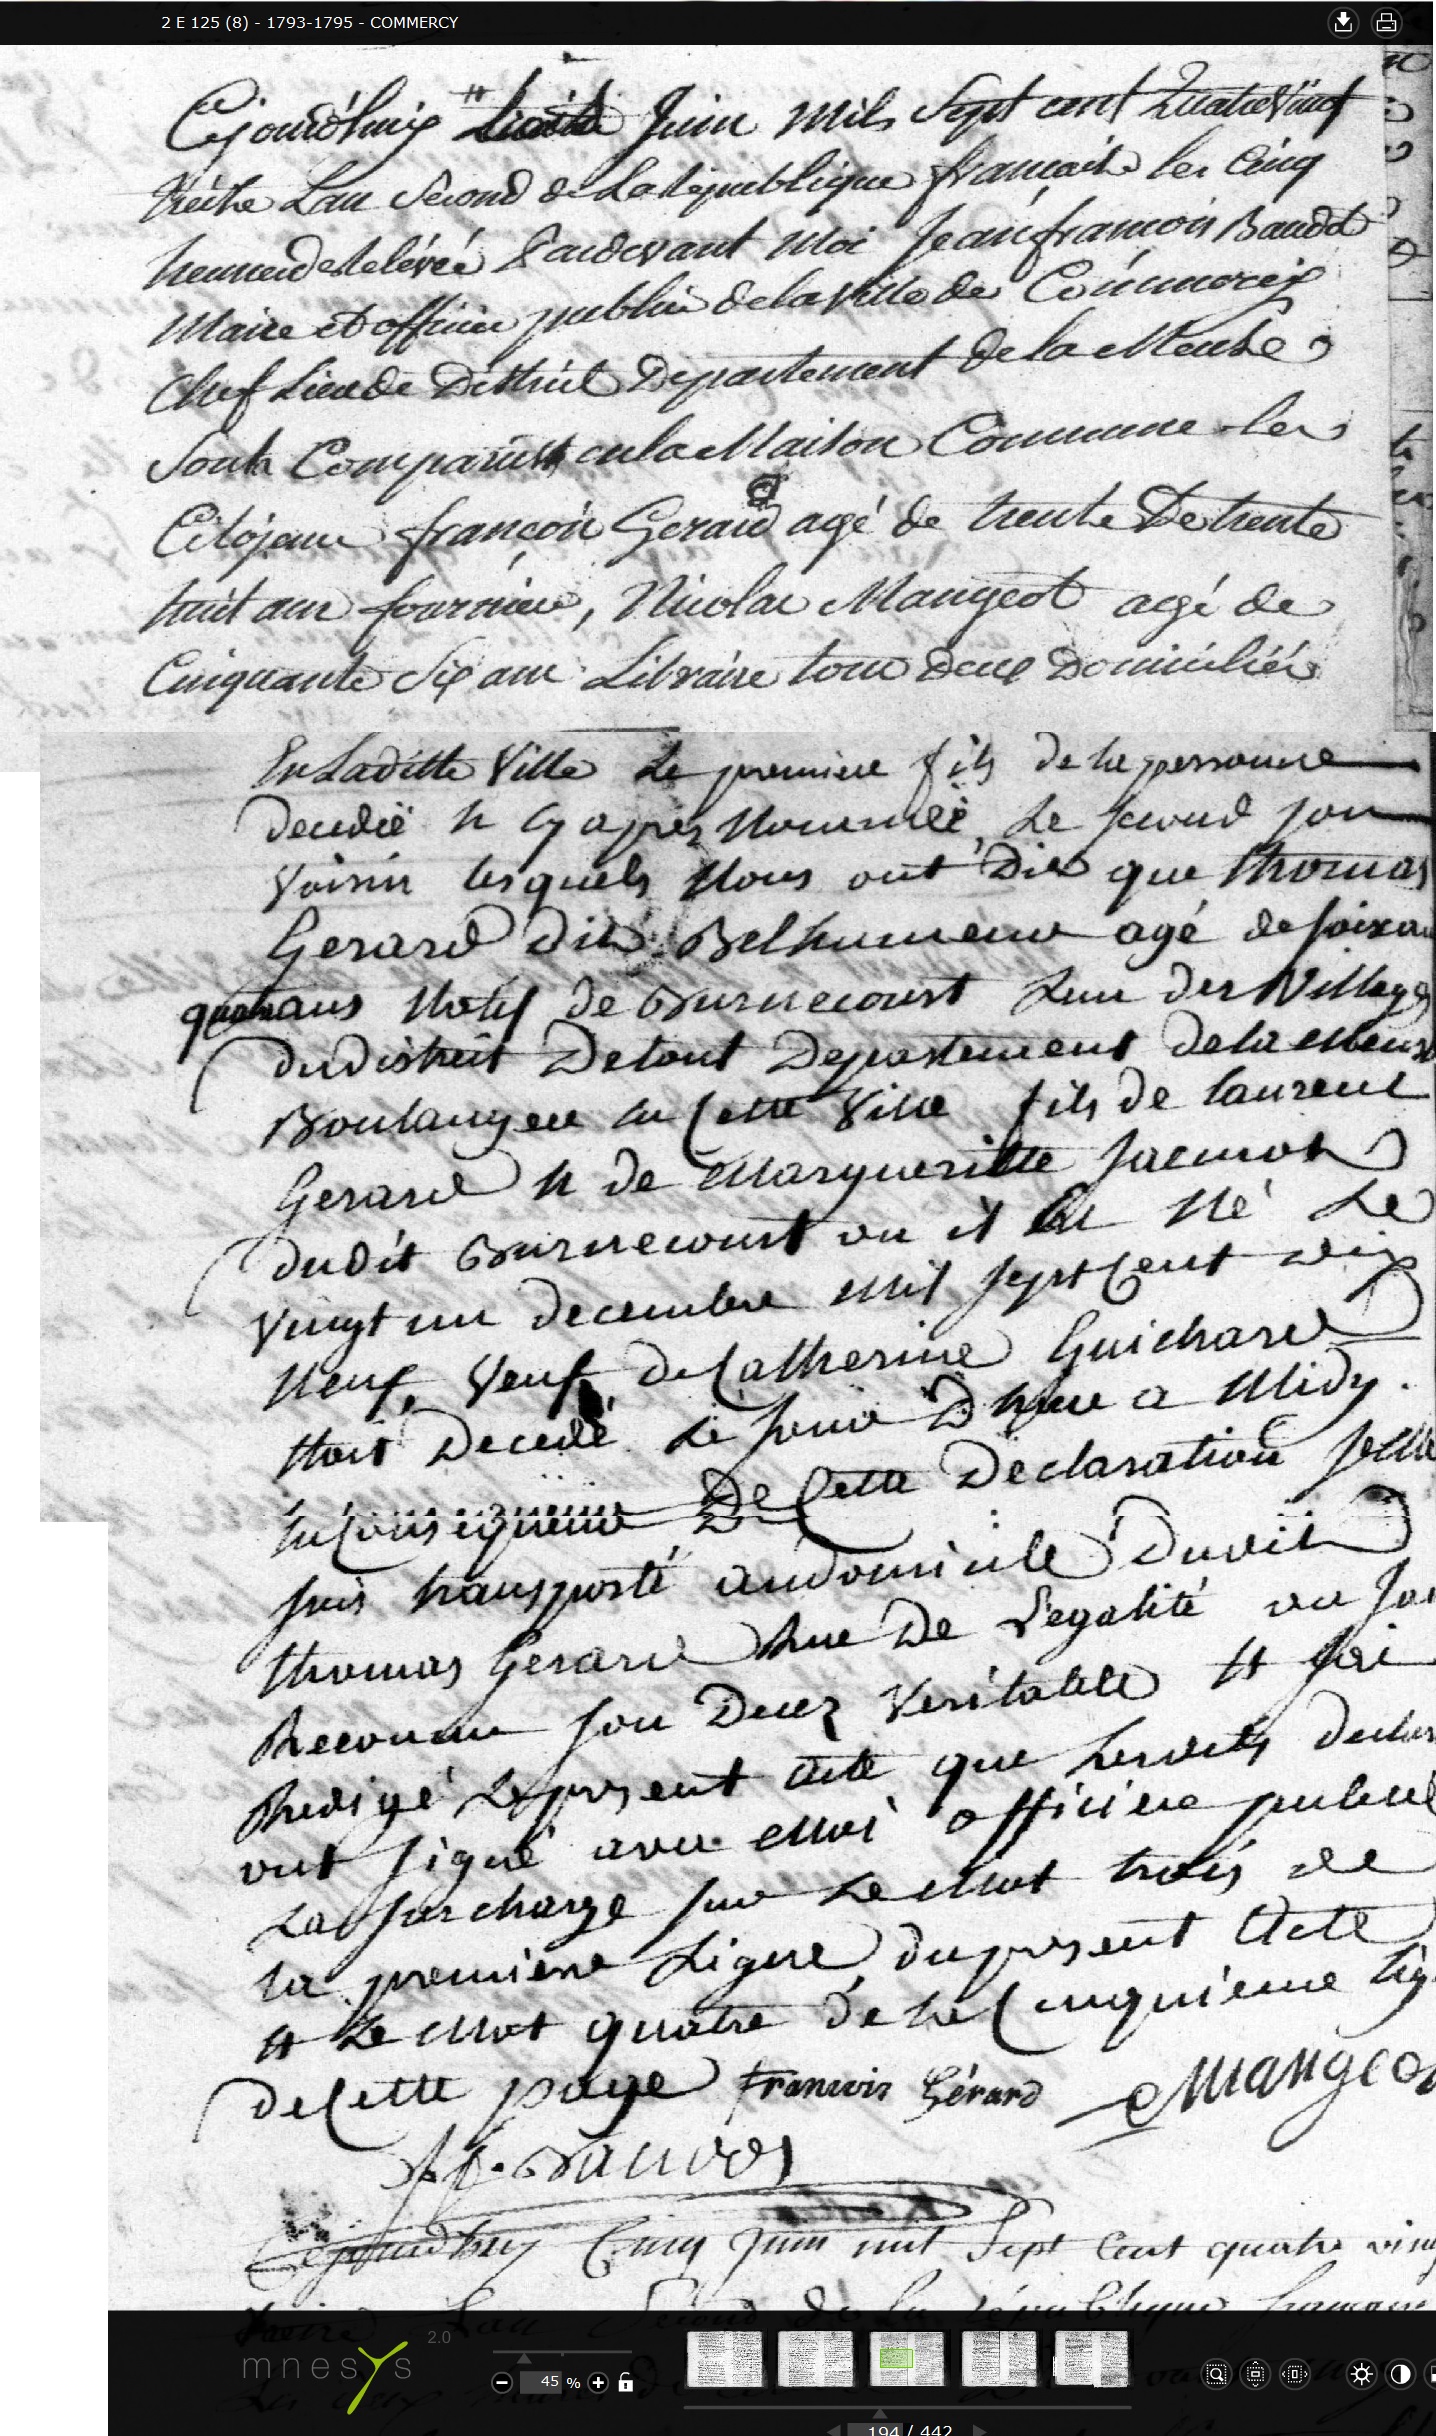 2 E 125 (8) - 1793-1795 - COMMERCY
Cejourd'huy trois Juin Mils Sept cent Quatrevingt
treitze Lan Second de La République françaite les Cinq
heures de relévéé Pardevant Moi Jean françois Baudot
Maire et officier public de la Ville de Commercy
Chef Lieu de District Département de la Meuse
Sont Comparust en la Maison Commune les
Citojens françois Gerard agé de trente De trente
huit ans fournier, Nicolas Mangeot agé de
Cinquante Six ans Libraire tous Deux Domiciliés
En Laditte Ville Le premiere fils de la personne
Decedéé et Cy apres Nomméé, Le Second son
Voisin lesquels Nous ont Dit que thomas
Gerard dit Belhumeur agé de soixan
quatre ans Natif de Burnecourt L'un des Villages
du district De toul Departement de la Meurt
Boulanger en Cette Ville fils de laurent
Gerard et de Margueritte Jacmot
dudit Burnecourt ou il Est Né Le
Vingt un decembre Mil sept Cent dix
Neuf, Veuf de Catherine Guichard
Etoit Decedé Le jour D'hier a Midy.
En Consequence De Cette Declaration je me
suis transporté au domicile Dudit
thomas Gerard Rue De L'egalité ou J'ai
Reconnu son Decez Veritable et J'ai
Redigé Le present acte que Lesdits declar
ont signé avec Moi officier public
La surcharge sur Le Mot trois de
la premiere Ligne du present Acte
et Le Mot quatre de la Cinquieme lig
de Cette page francois Gérard Mangeot
J. f. Baudot
Cejourdhuy Cinq Juin mil Sept Cent quatre ving
treize Lan Second de la République francaise
mnesys 2.0
45 %
194 / 442